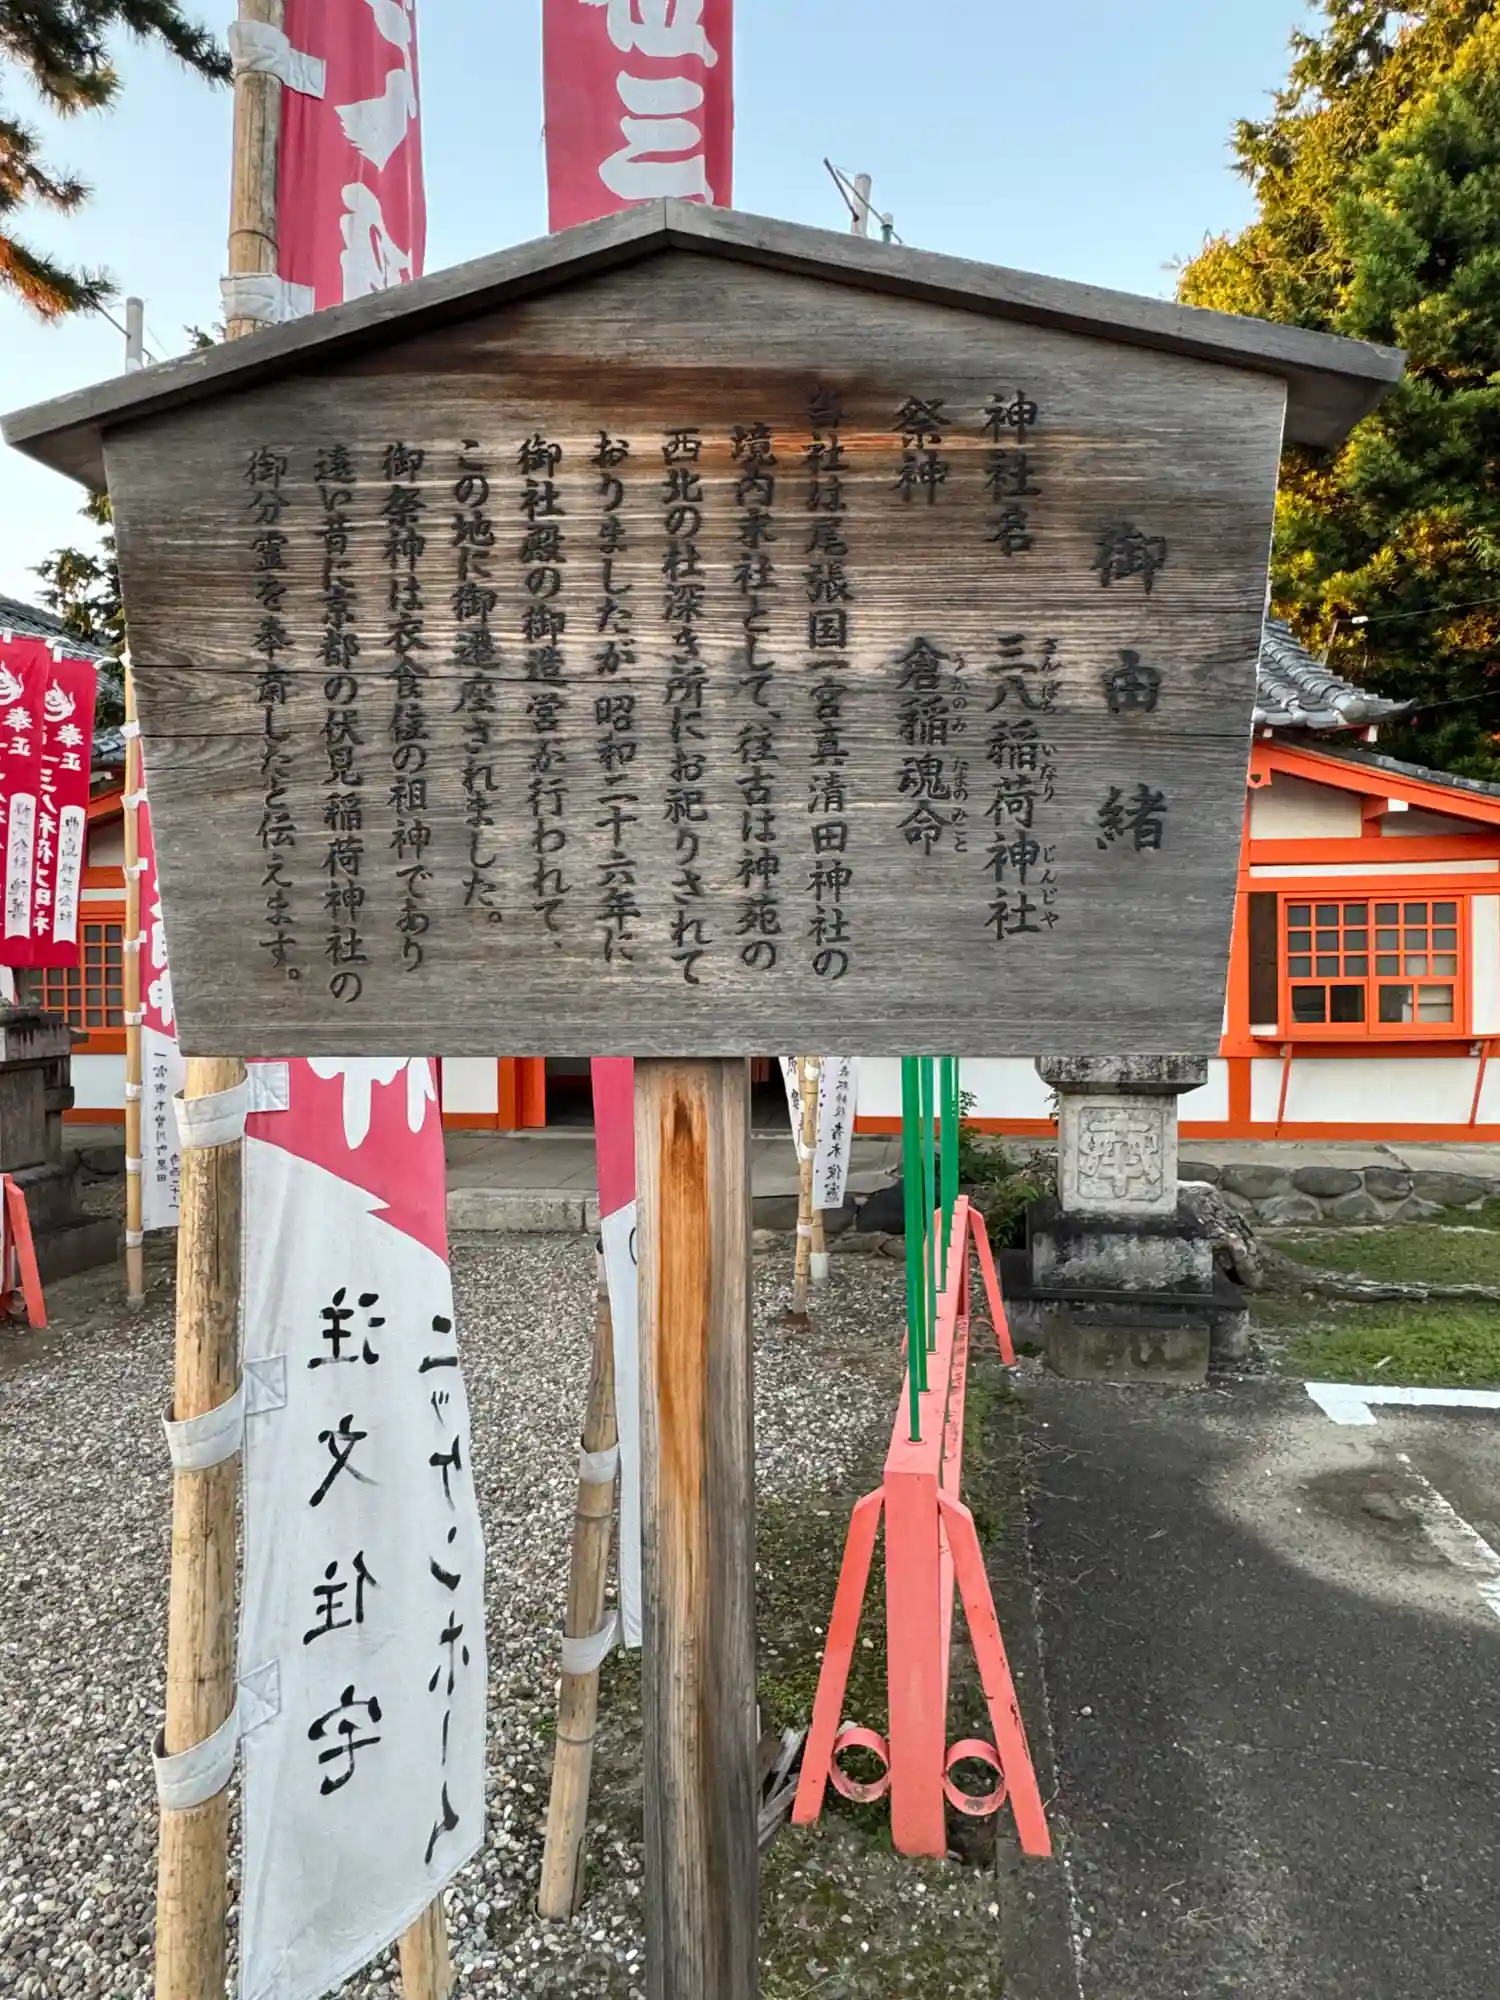 御由緒
神社名　三八稲荷神社
さんぱち　いなり　じんじや
祭神　倉稲魂命
うかのみたまのみこと
当社は尾張国一宮真清田神社の
境内末社として、往古は神苑の
西北の杜深き所にお祀りされて
おりましたが、昭和二十六年に
御社殿の御造営が行われて、
この地に御遷座されました。
御祭神は衣食住の祖神であり
遠い昔に京都の伏見稲荷神社の
御分霊を奉斎したと伝えます。
ニッケンホーム
注文住宅
三
奉
奉正
奉正